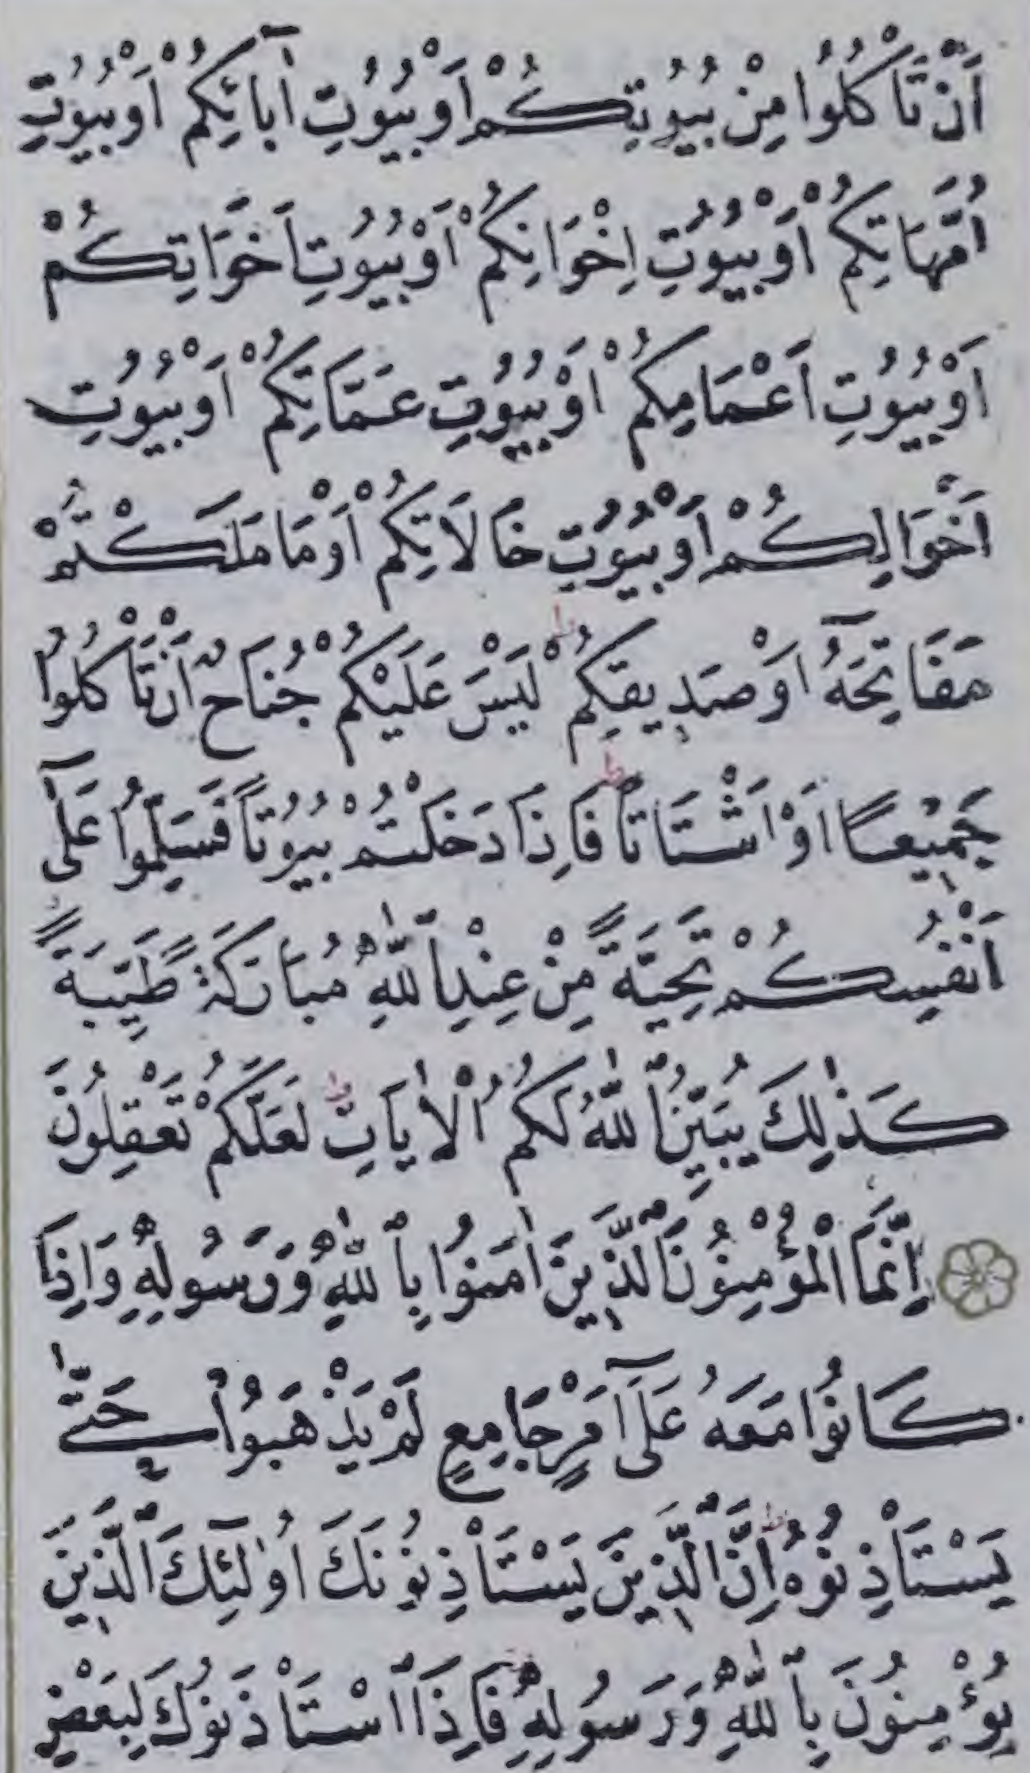 اَنْ تَاْكُلُوا مِنْ بُيُوتِكُمْ اَوْ بُيُوتِ اٰبَائِكُمْ اَوْ بُيُوتِ
اُمَّهَاتِكُمْ اَوْ بُيُوتِ اِخْوَانِكُمْ اَوْ بُيُوتِ اَخَوَاتِكُمْ
اَوْ بُيُوتِ اَعْمَامِكُمْ اَوْ بُيُوتِ عَمَّاتِكُمْ اَوْ بُيُوتِ
اَخْوَالِكُمْ اَوْ بُيُوتِ خَالَاتِكُمْ اَوْ مَا مَلَكْتُمْ
مَفَاتِحَهُٓ اَوْ صَدِيقِكُمْ ط لَيْسَ عَلَيْكُمْ جُنَاحٌ اَنْ تَاْكُلُوا
جَمِيْعًا اَوْ اَشْتَاتًا ط فَاِذَا دَخَلْتُمْ بُيُوتًا فَسَلِّمُوا عَلٰٓى
اَنْفُسِكُمْ تَحِيَّةً مِنْ عِنْدِ اللّٰهِ مُبَارَكَةً طَيِّبَةً
كَذٰلِكَ يُبَيِّنُ اللّٰهُ لَكُمُ الْاٰيَاتِ ط لَعَلَّكُمْ تَعْقِلُونَ
اِنَّمَا الْمُؤْمِنُونَ الَّذِينَ اٰمَنُوا بِاللّٰهِ وَرَسُولِهِ وَاِذَا
كَانُوا مَعَهُ عَلٰٓى اَمْرٍ جَامِعٍ لَمْ يَذْهَبُوا حَتّٰى
يَسْتَاْذِنُوهُ ط اِنَّ الَّذِينَ يَسْتَاْذِنُونَكَ اُولٰٓئِكَ الَّذِينَ
يُؤْمِنُونَ بِاللّٰهِ وَرَسُولِهِ فَاِذَا اسْتَاْذَنُوكَ لِبَعْضِ